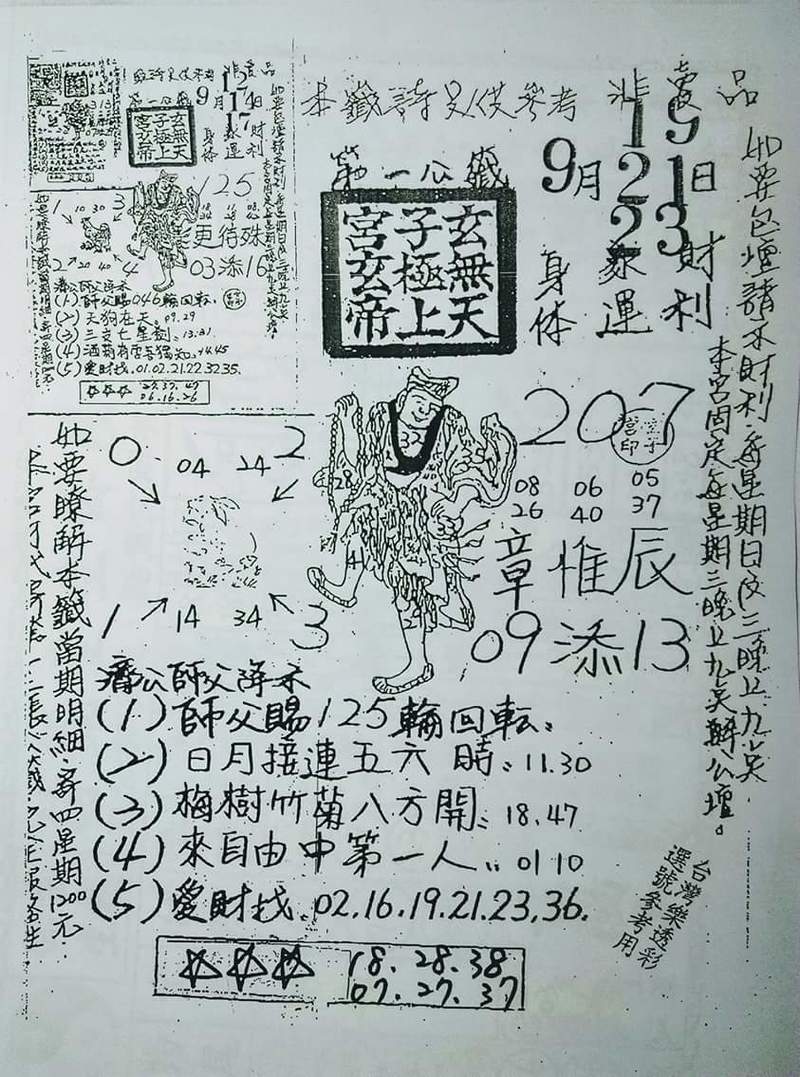 本籤詩只供參考 非賣品
第一公籤
9月
19
21日
23
玄無天
子極上
宮玄帝
身体
運
財利
如要包壇請示財利.每星期日及三晚上九点
本宮固定每星期三晚上九点辦公壇。
207
08 06 05
26 40 37
章惟辰
09添13
32
35
28
41
0 04 24 2
1 14 34 3
如要瞭解本籤當期明細.寄四星期1200元
濟公師父降示
(1) 師父賜125輪回転
(2) 日月接連五六時 11.30
(3) 梅樹竹菊八方開 18.47
(4) 來自由中第一人 01 10
(5) 愛財找.02.16.19.21.23.36.
18.28.38
07.27.37
台灣樂透彩
選號參考用
9月
17
玄無天
子極上
宮玄帝
身体
運
財利
125
更待殊
03添16
1 10 30 3
2 20 40 4
濟公師父降示
(1) 師父賜046輪回転
(2) 天狗在天 09.29
(3) 三支七星劍 13.31
(5) 愛財找.01.02.21.22.32.35.
27.37.47
06.16.26